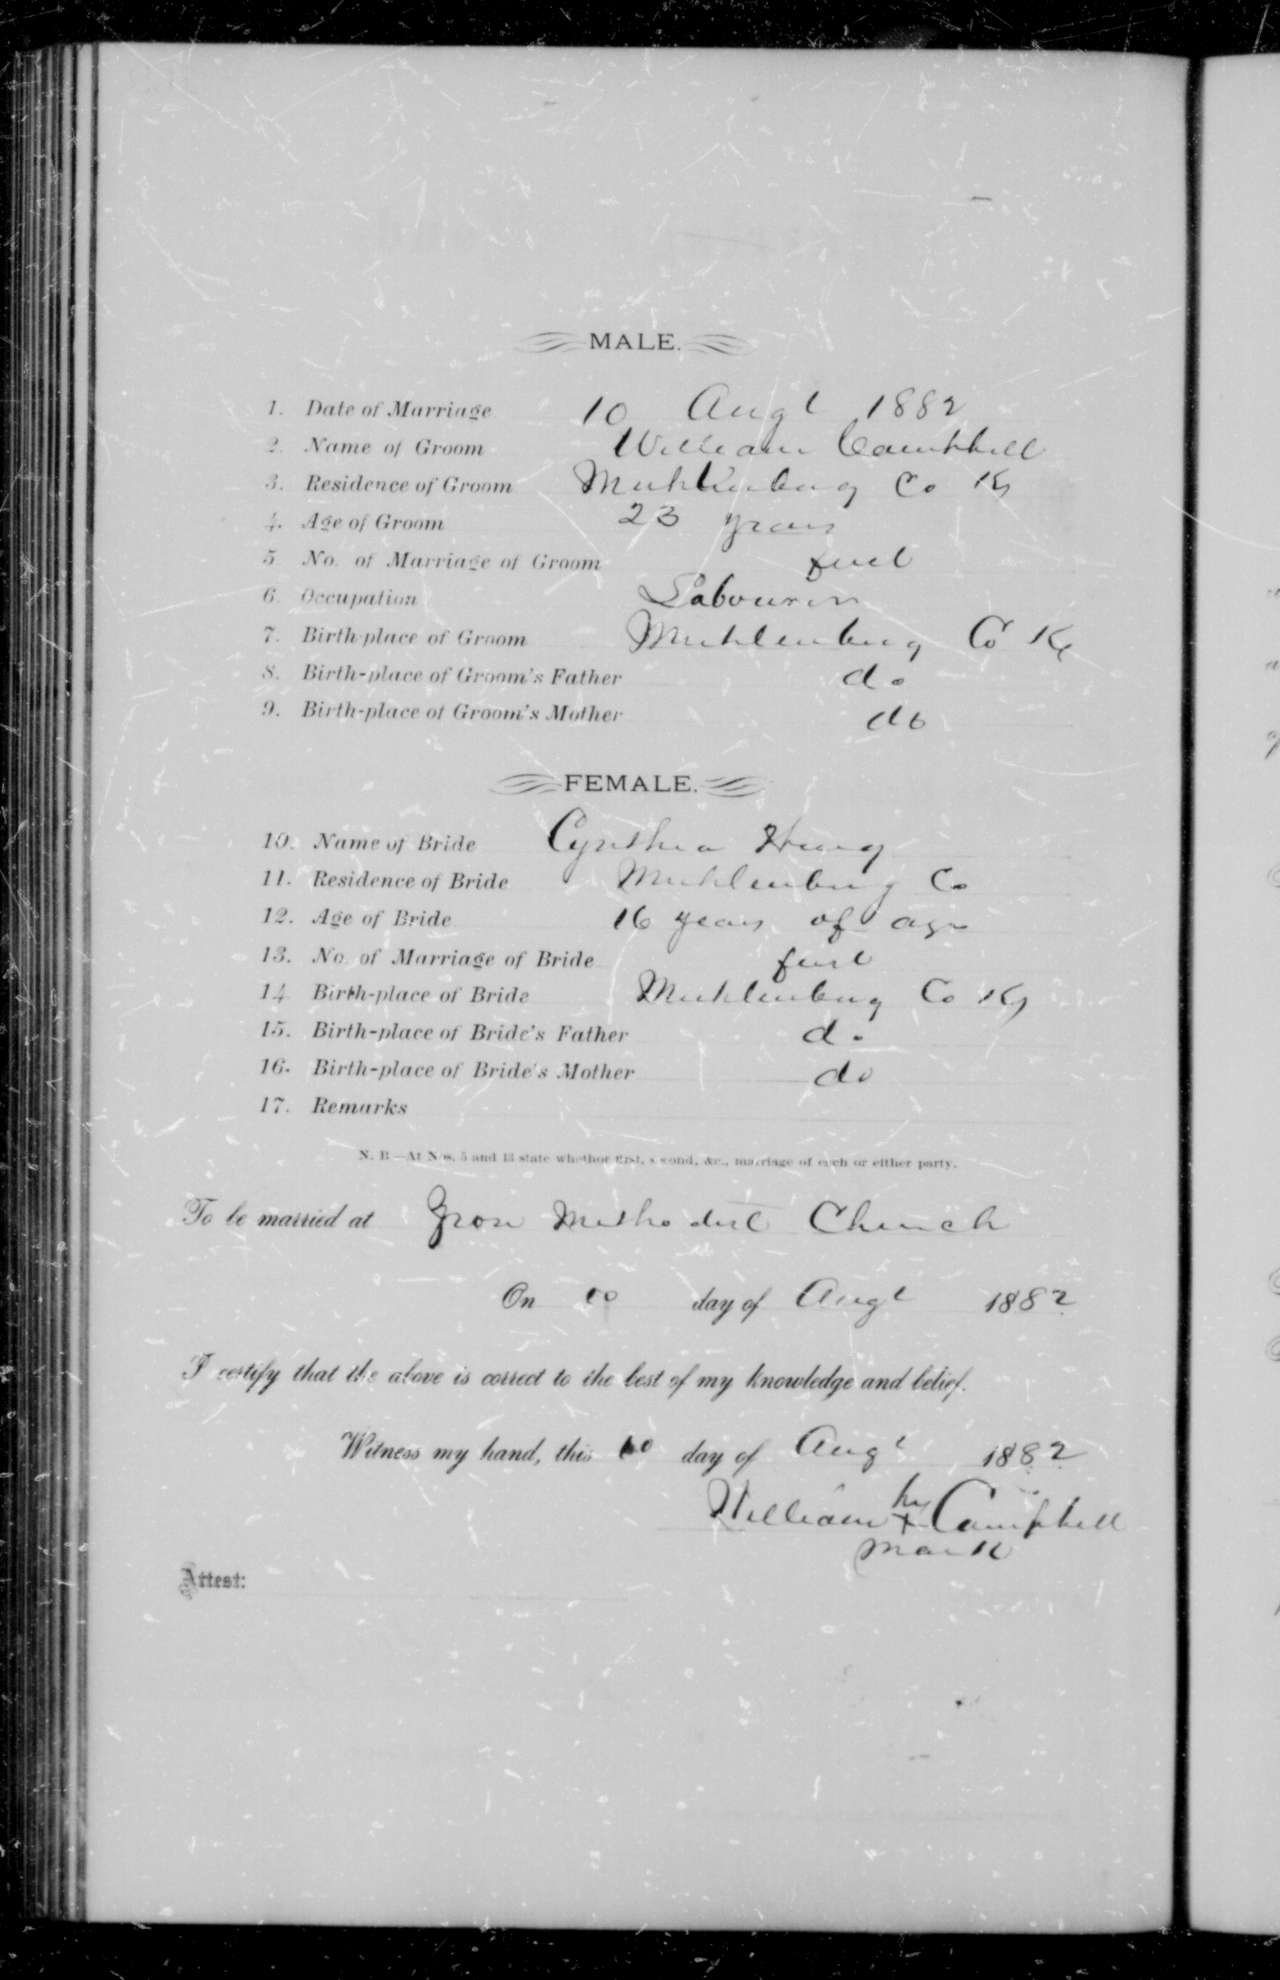 MALE.
1. Date of Marriage 10 Augt 1882
2. Name of Groom William Campbell
3. Residence of Groom Muhlenburg Co Ky
4. Age of Groom 23 years
5 No. of Marriage of Groom first
6. Occupation Labourer
7. Birth-place of Groom Muhlenburg Co Ky
8. Birth-place of Groom's Father do
9. Birth-place of Groom's Mother do
FEMALE.
10. Name of Bride Cynthia
11. Residence of Bride Muhlenburg Co
12. Age of Bride 16 years of age
13. No. of Marriage of Bride first
14 Birth-place of Bride Muhlenburg Co Ky
15. Birth-place of Bride's Father do
16. Birth-place of Bride's Mother do
17. Remarks
N. B—At Nos. 5 and 13 state whether first, second, &c., marriage of each or either party.
To be married at Methodist Church
On 10 day of Augt 1882
I certify that the above is correct to the best of my knowledge and belief.
Witness my hand, this 10 day of Augt 1882
William his x Campbell
mark
Attest: